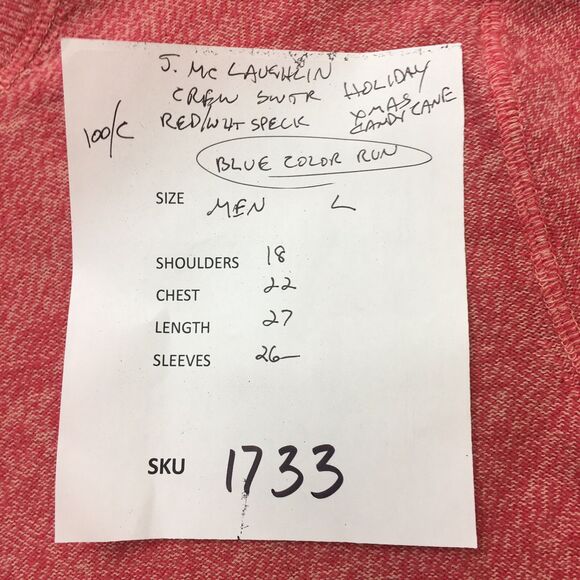 J. MCLAUGHLIN
CREW SWTR HOLIDAY
100/C RED/WHT SPECK XMAS
CANDY CANE
BLUE COLOR RUN
SIZE MEN L
SHOULDERS 18
CHEST 22
LENGTH 27
SLEEVES 26
SKU 1733